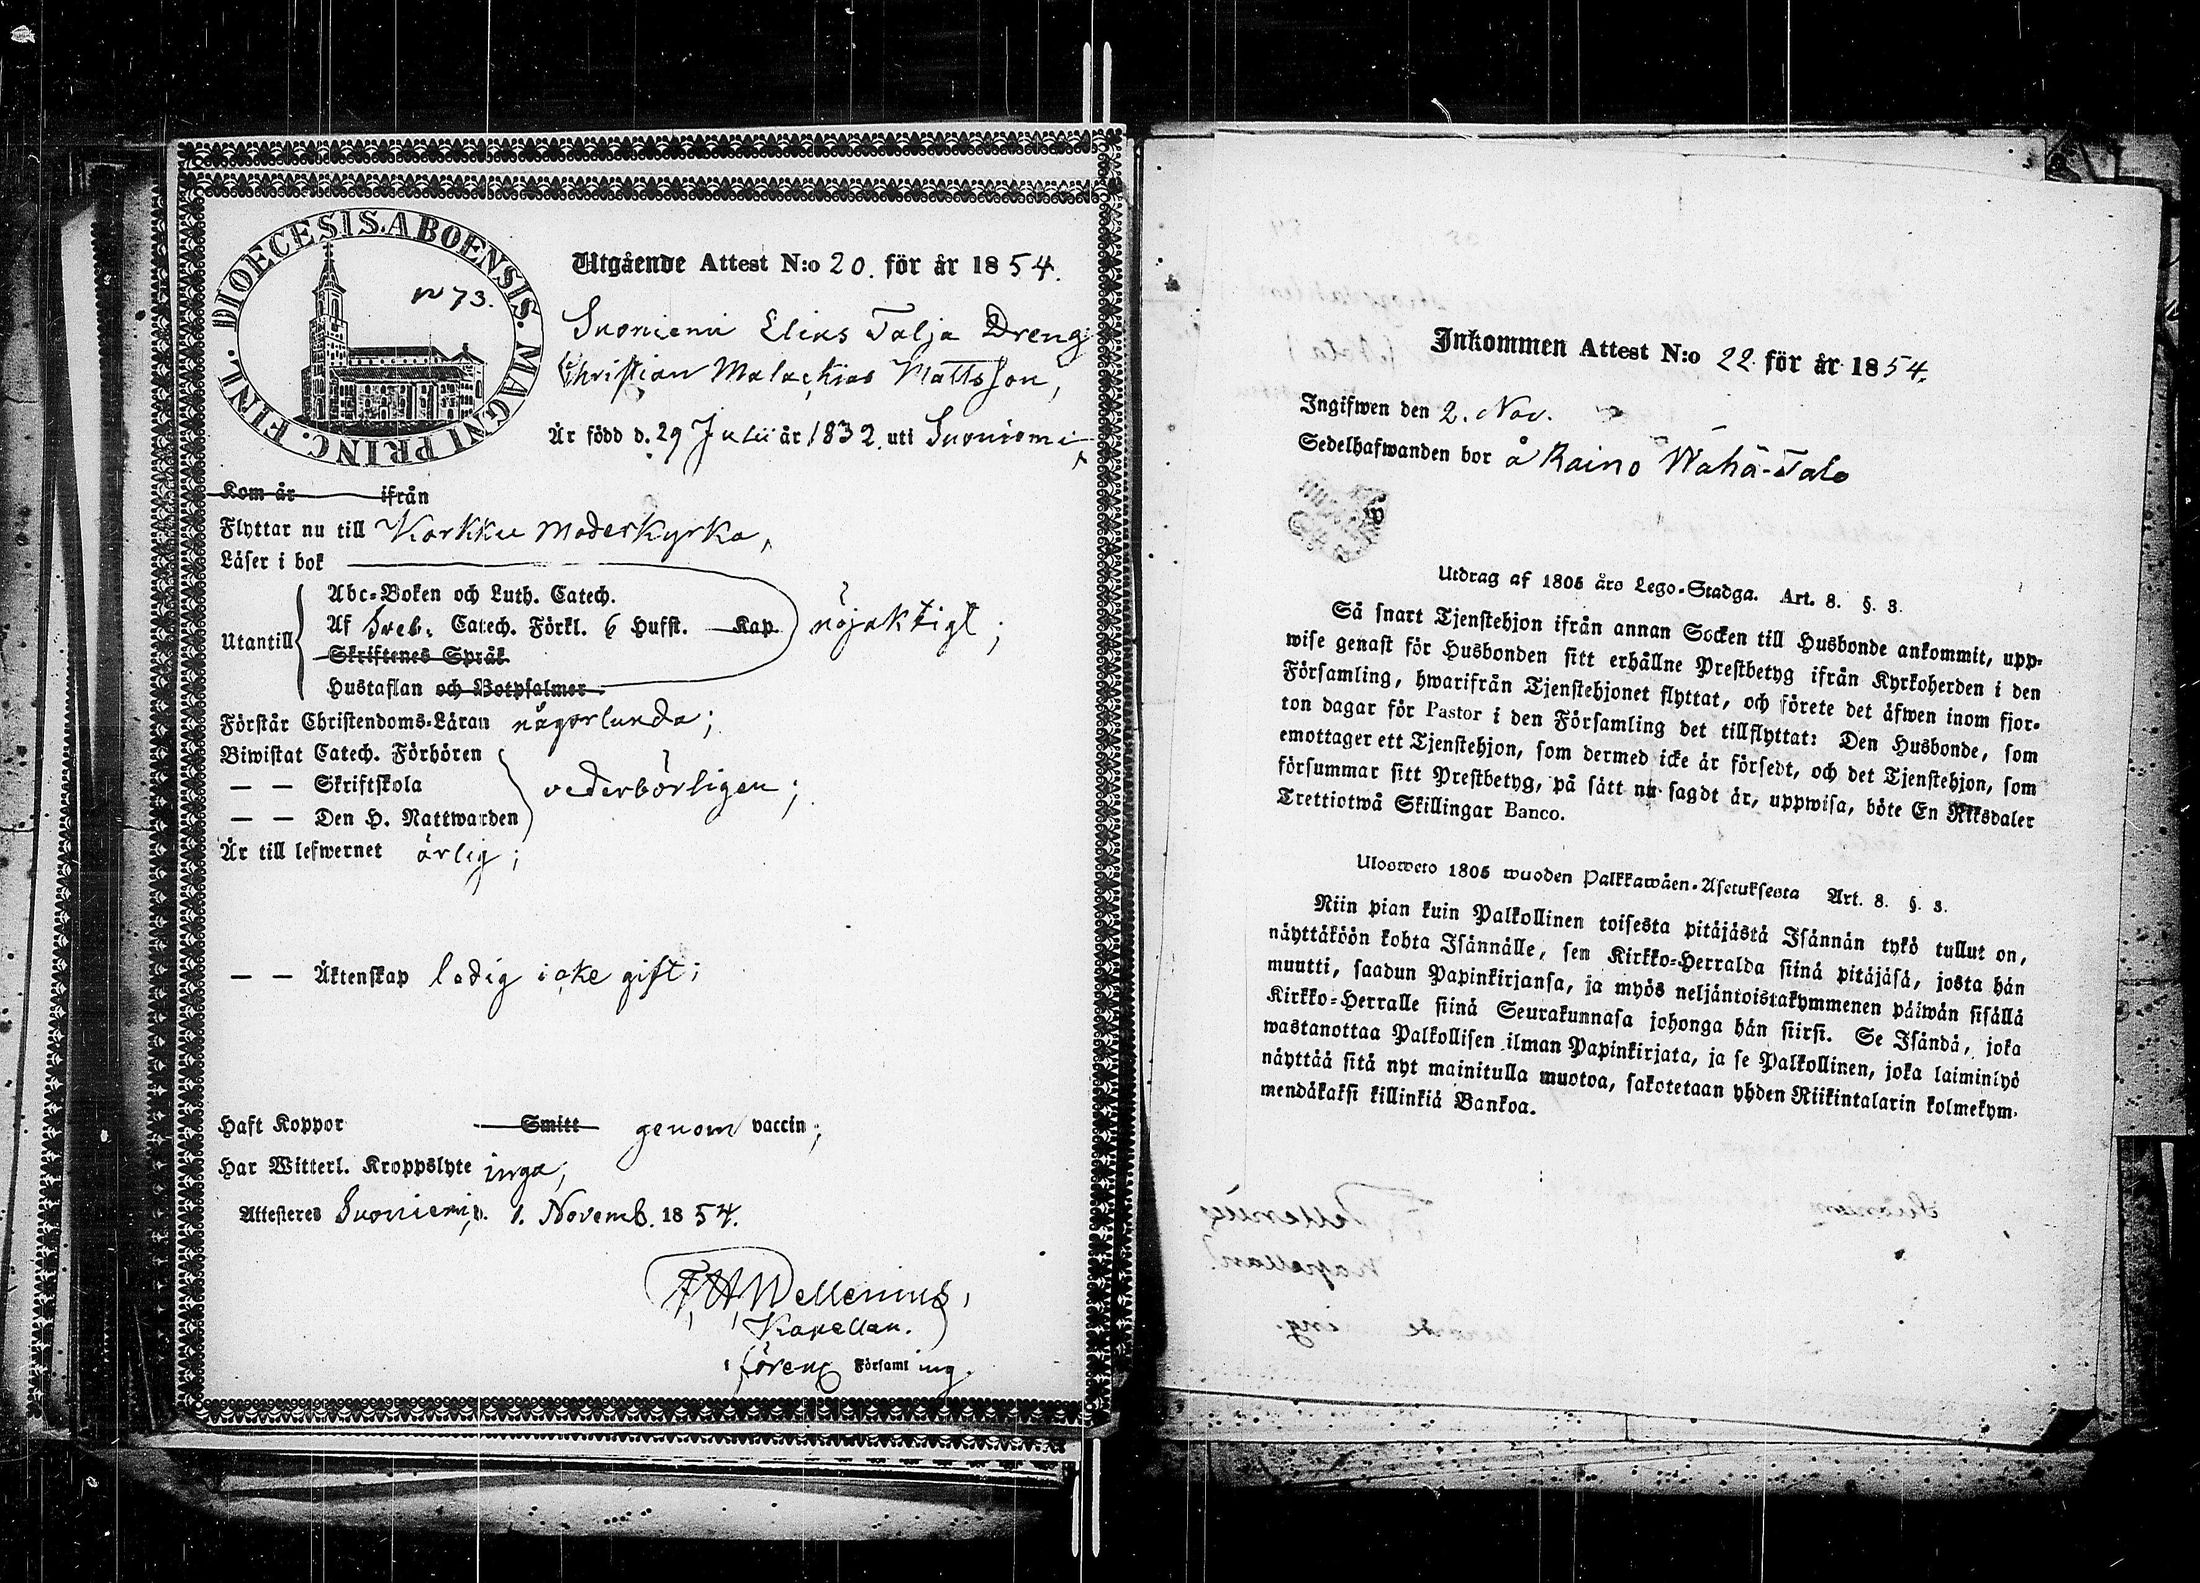 DIOECESIS. ABOENSIS. MAGNI PRINC. FINL.
N 73.
Utgående Attest N:o 20. för år 1854.
Suoniemi Elias Talja Dreng
Christian Malachias Mattsson,
Är född d. 29 Julii år 1832. uti Suoniemi
Kom år ifrån
Flyttar nu till Karkku Moderkyrka,
Läser i bok
Utantill
Abc-Boken och Luth. Catech.
Af Sveb. Catech. Förkl. 6 Hufst. Kap nöjaktigt;
Skriftenes Språk
Hustaflan och Botpsalmer
Förstår Christendoms-Läran någorlunda;
Biwistat Catech. Förhören
— — Skriftskola vederbörligen;
— — Den H. Nattwarden
Är till lefwernet ärlig;
— — Äktenskap ledig icke gift;
Haft Koppor Smitt genom vaccin;
Har Witterl. Kroppslyte inga;
Attesteres Suoniemi, d. 1. Novemb. 1854.
F. H. Wellenius,
Kapellan.
i förenz Församling.
Inkommen Attest N:o 22. för år 1854.
Ingifwen den 2. Nov.
Sedelhafwanden bor å Raino Wähä-Talo
Utdrag af 1805 års Lego-Stadga. Art. 8. §. 3.
Så snart Tjenstehjon ifrån annan Socken till Husbonde ankommit, upp-
wise genast för Husbonden sitt erhållne Prestbetyg ifrån Kyrkoherden i den
Församling, hwarifrån Tjenstehjonet flyttat, och förete det äfwen inom fjor-
ton dagar för Pastor i den Församling det tillflyttat: Den Husbonde, som
emottager ett Tjenstehjon, som dermed icke är försedt, och det Tjenstehjon, som
försummar sitt Prestbetyg, på sätt nu sagdt är, uppwisa, böte En Riksdaler
Trettiotwå Skillingar Banco.
Ulosweto 1805 wuoden Palkkawäen-Asetuksesta Art. 8. §. 3.
Niin pian kuin Palkollinen toisesta pitäjästä Isännän tykö tullut on,
näyttäköön kohta Isännälle, sen Kirkko-Herralda siinä pitäjäsä, josta hän
muutti, saadun Papinkirjansa, ja myös neljäntoistakymmenen päiwän sisällä
Kirkko-Herralle siinä Seurakunnasa johonga hän siirsi. Se Isändä, joka
wastanottaa Palkollisen ilman Papinkirjata, ja se Palkollinen, joka laiminlyö
näyttää sitä nyt mainitulla muotoa, sakotetaan yhden Riikintalarin kolmekym-
mendäkaksi killinkiä Bankoa.